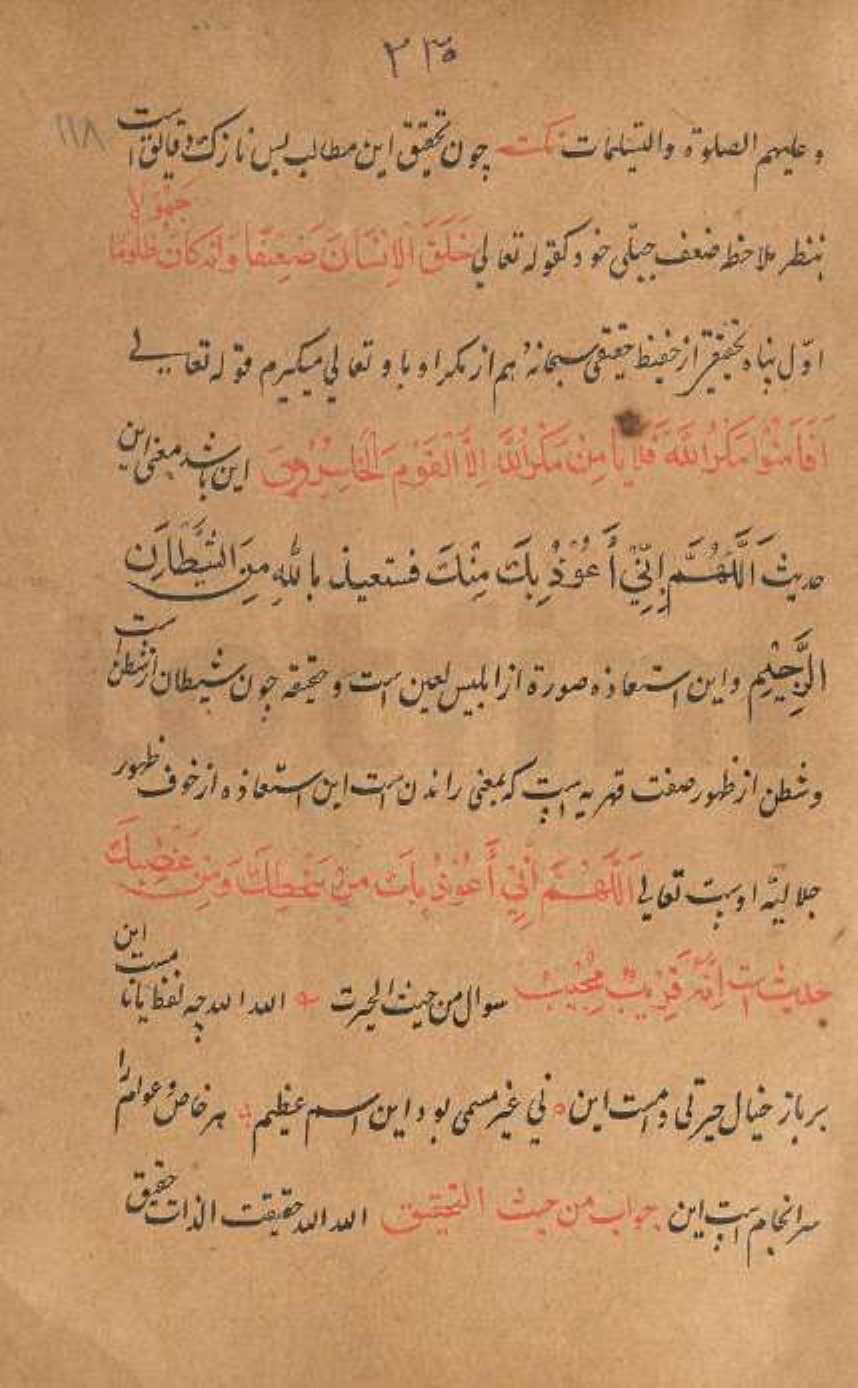 ۲۳۵
۱۱۸
و علیهم الصلوة والتسلیمات نکته چون تحقیق این مطالب بس نازک و دقایق است
بنظر ملاحظه ضعف جبلّی خود کقوله تعالی خَلَقَ الاِنسَانَ ضَعِیفًا وَاِنَّه کَانَ ظَلُومًا جَهُولًا
اوّل پناه بحقیقی از حفیظ حقیقی سبحانهٗ هم از مکر او باو تعالی میگیرم قوله تعالی
اَفَاَمِنُوا مَکْرَ اللّٰهِ فَلَا یَأمَنُ مَکْرَ اللّٰهِ اِلَّا الْقَوْمُ الْخَاسِرُونَ این باشد معنی این
حدیث اَللّٰهُمَّ اِنِّیْ أَعُوْذُ بِكَ مِنْكَ فستعیذ باللّٰهِ مِنَ الشَّیْطَانِ
الرَّجِیْمِ و این استعاذه صورة از ابلیس لعین است و حقیقه چون شیطان از شطن است
و شطن از ظهور صفت قهریه است که بمعنی راندن است این استعاذه از خوف ظهور
جلالیّه اوست تعالی اَللّٰهُمَّ اِنِّی أَعُوْذُ بِكَ مِنْ سَخَطِكَ وَمِنْ غَضَبِكَ
حدیث است اِنَّهٗ قَرِیْبٌ مُجِیْبٌ سوال من حیث الحیرت الله الله چه لفظ یا نامست این
بر باز خیال حیرتی دامست این نی غیر مسمی بود این اسم عظیم هر خاص و عوام را
سرانجام است این جواب من حیث التحقیق الله الله حقیقت الذات حقیق